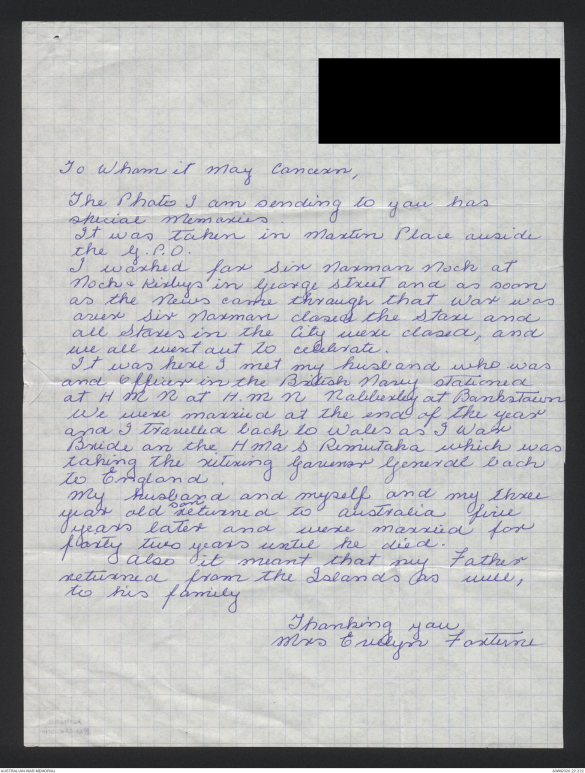 To Wham it May Concern,
The Photo I am sending to you has
special Memories.
It was taken in Martin Place outside
the G.P.O.
I worked for Sir Norman Nock at
Nock & Kirbys in George Street and as soon
as the News came through that War was
over Sir Norman closed the Store and
all Stores in the City were closed, and
we all went out to celebrate.
It was here I met my husband who was
and Officer in the British Navy stationed
at H M R at H.M.N Nabberley at Bankstown
We were married at the end of the year
and I travelled back to Wales as I War
Bride on the H Ma S Rimutaka which was
taking the retiring Governor General back
to England.
My husband and myself and my three
year old son returned to australia five
years later and were married for
forty two years until he died.
Also it meant that my Father
returned from the Islands as well,
to his family
Thanking you
Mrs Evelyn
AUSTRALIAN WAR MEMORIAL